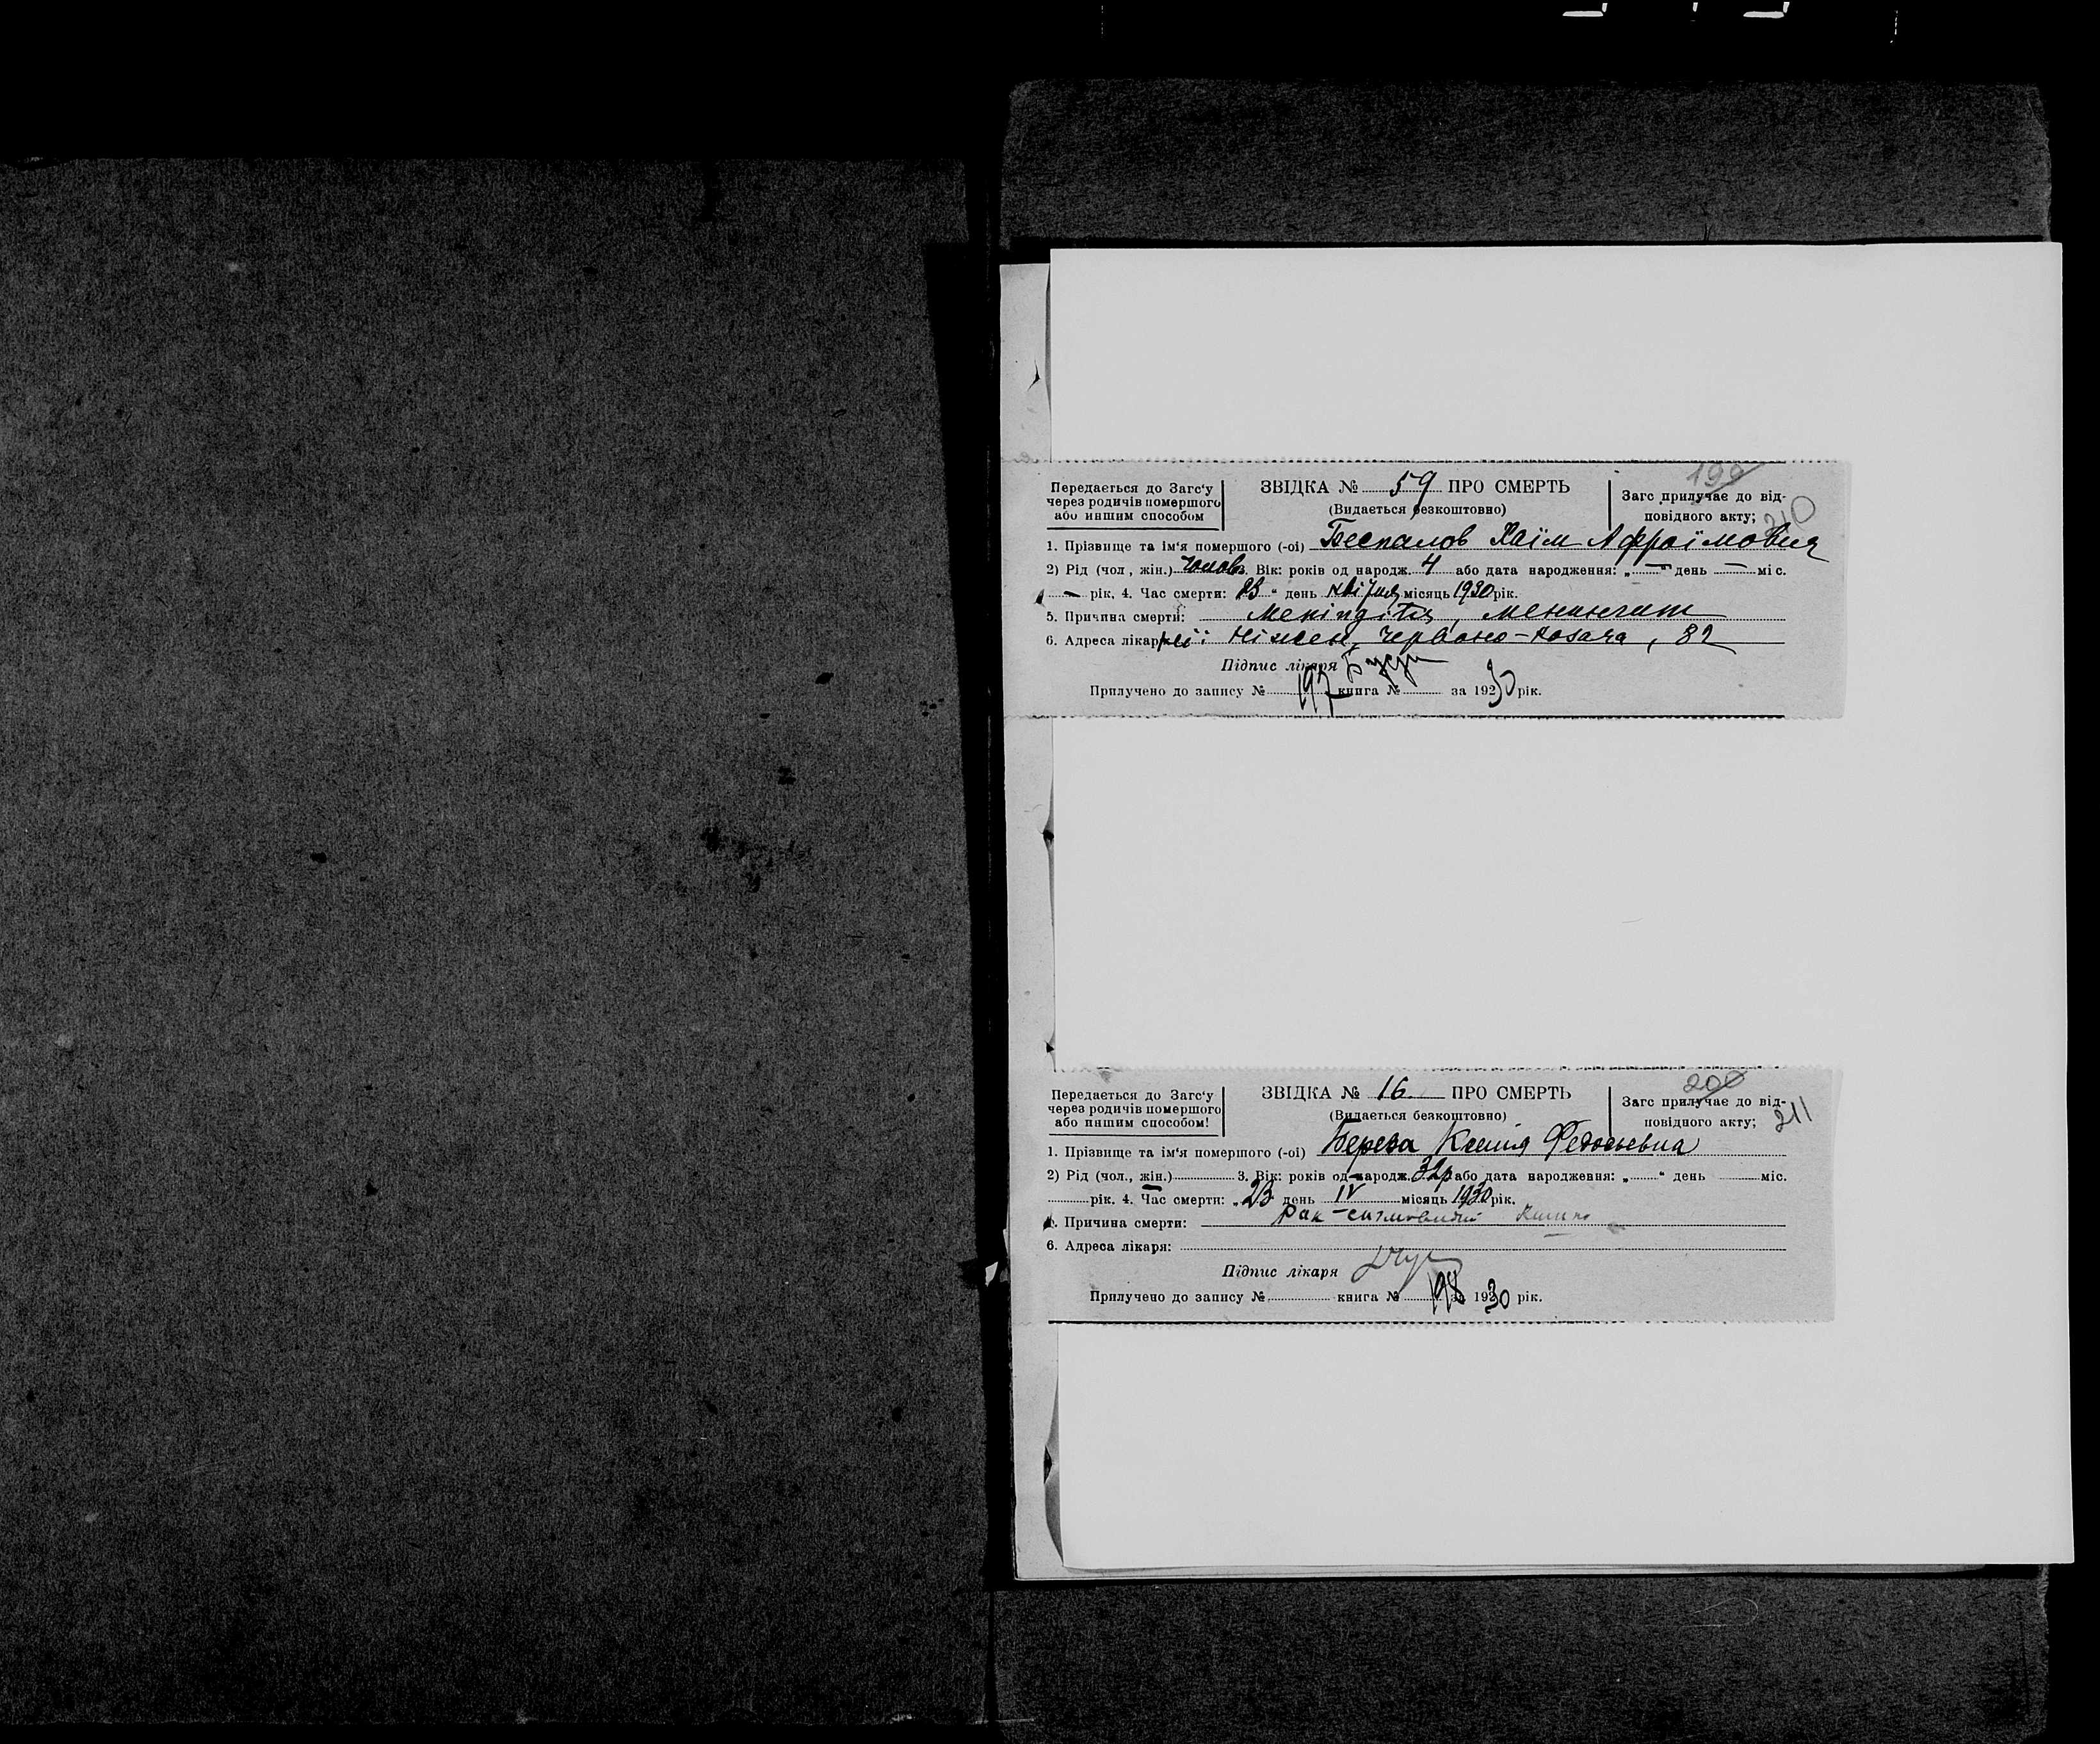 199
Передається до Загс'у
через родичів помершого
або иншим способом
ЗВІДКА № 59 ПРО СМЕРТЬ
(Видається безкоштовно)
Загс прилучає до від-
повідного акту; 210
1. Прізвище та ім'я помершого (-ої) Беспалов Хаїм Афроїмович
2) Рід (чол, жін.) чолов. Вік: років од народж. 4 або дата народження: „ — “ день — міс.
— рік. 4. Час смерти: 23 “ день квітня місяць 1930 рік.
5. Причина смерти: Meningitis, менингит
6. Адреса лікарні Ніжен, Червоно-Козача, 82
Підпис лікаря
Прилучено до запису № 197 книга № за 1930 рік.
200
Передається до Загс'у
через родичів помершого
або иншим способом!
ЗВІДКА № 16. ПРО СМЕРТЬ
(Видається безкоштовно)
Загс прилучає до від-
повідного акту; 211
1. Прізвище та ім'я помершого (-ої) Береза Ксенія Федосьевна
2) Рід (чол., жін.) 3. Вік: років од народж. 32р або дата народження: „ “ день міс.
рік. 4. Час смерти: „23 день IV місяць 1930 рік.
5. Причина смерти: Рак
6. Адреса лікаря:
Підпис лікаря
Прилучено до запису № книга № 198 за 1930 рік.